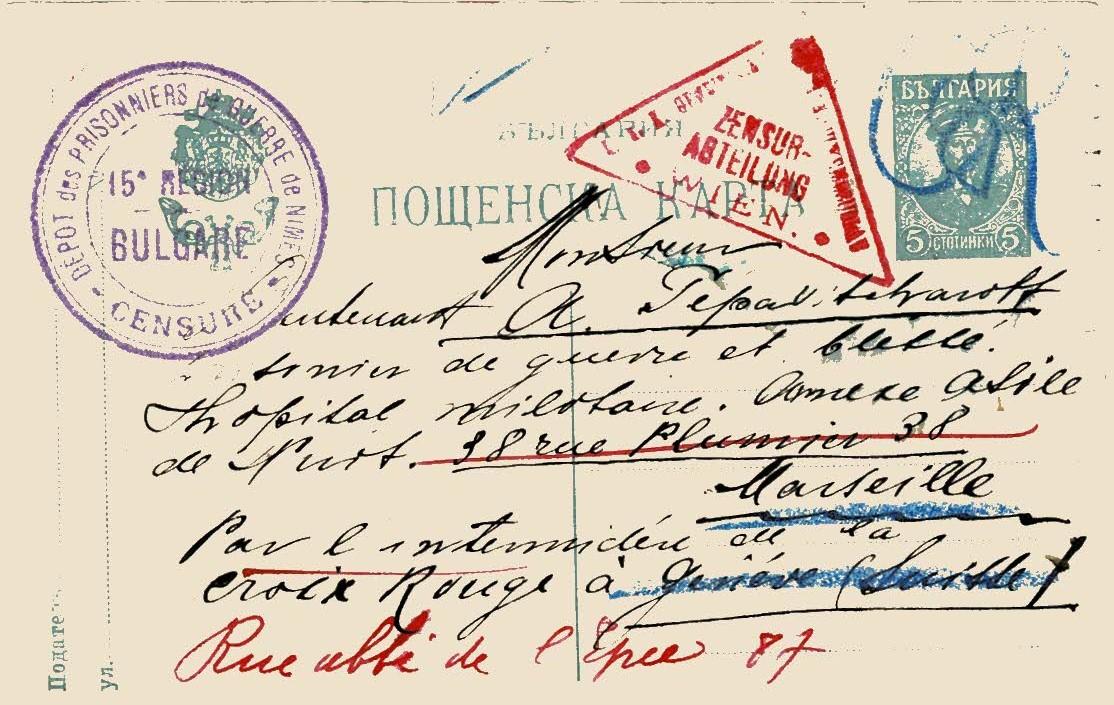 DEPOT des PRISONNIERS de GUERRE de NIMES
15ᵉ REGION
BULGARIE
CENSURE
БЪЛГАРИЯ
ПОЩЕНСКА КАРТА
ZENSUR-
ABTEILUNG
WIEN.
БЪЛГАРИЯ
5 СТОТИНКИ 5
Monsieur
A. Tepavitcharoff
de guerre et blessé.
Hôpital militaire. Annexe Asile
de Nuit. 38 rue Plumier 38
Marseille
Par l intermidére de la
Croix Rouge à Genéve (Suisse)
Rue abbé de l Epee 87
Подате
ул.